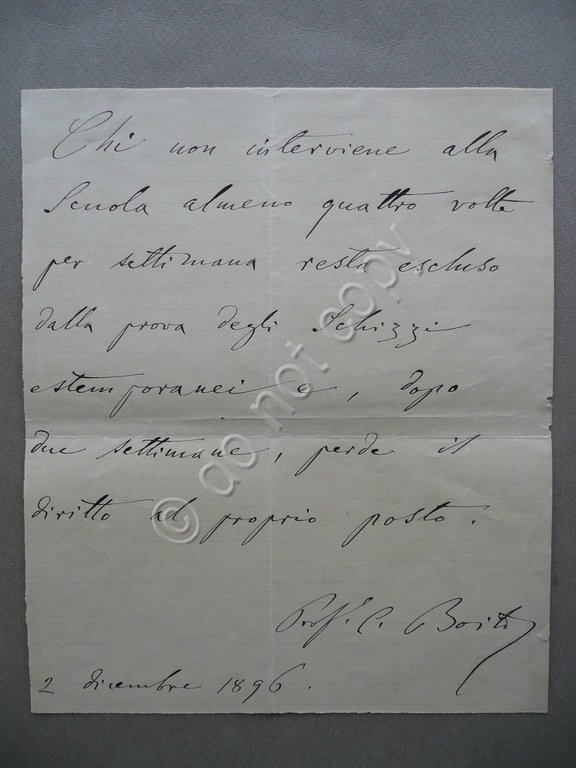 Chi non interviene alla
Scuola almeno quattro volte
per settimana resta escluso
dalla prova degli Schizzi
estemporanei e, dopo
due settimane, perde il
diritto al proprio posto.
Prof. C. Boito
2 dicembre 1896.
© do not copy